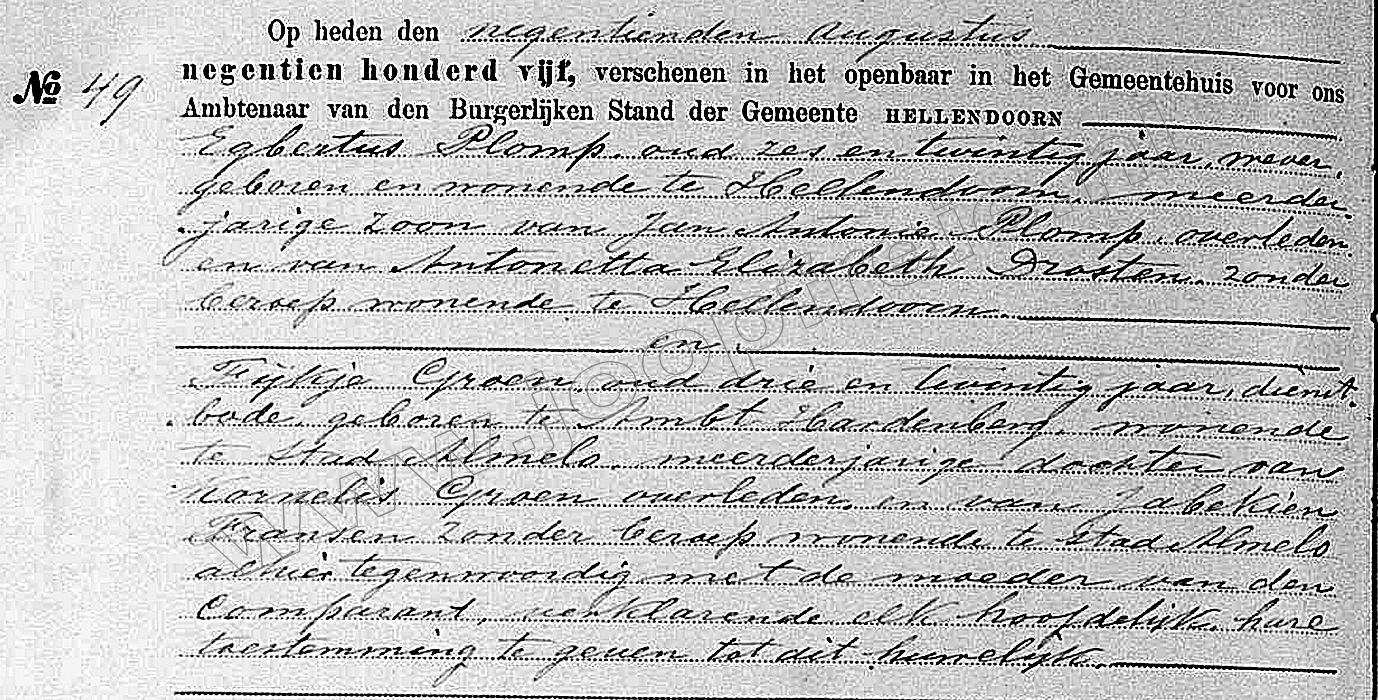 Op heden den negentienden Augustus
negentien honderd vijf, verschenen in het openbaar in het Gemeentehuis voor ons
No 49
Ambtenaar van den Burgerlijken Stand der Gemeente HELLENDOORN
Egbertus Plomp, oud zes en twintig jaar, wever,
geboren en wonende te Hellendoorn, meerder-
jarige zoon van Jan Antonie Plomp, overleden
en van Antonetta Elizabeth Drosten, zonder
beroep wonende te Hellendoorn.
en
Fijkje Groen, oud drie en twintig jaar, dienst-
bode, geboren te Ambt Hardenberg, wonende
te Stad Almelo, meerderjarige dochter van
Kornelis Groen overleden, en van Jabekien
Fransen zonder beroep wonende te Stad Almelo
alhier tegenwoordig met de moeder van den
Comparant, verklarende elk hoofdelijk hare
toestemming te geven tot dit huwelijk.